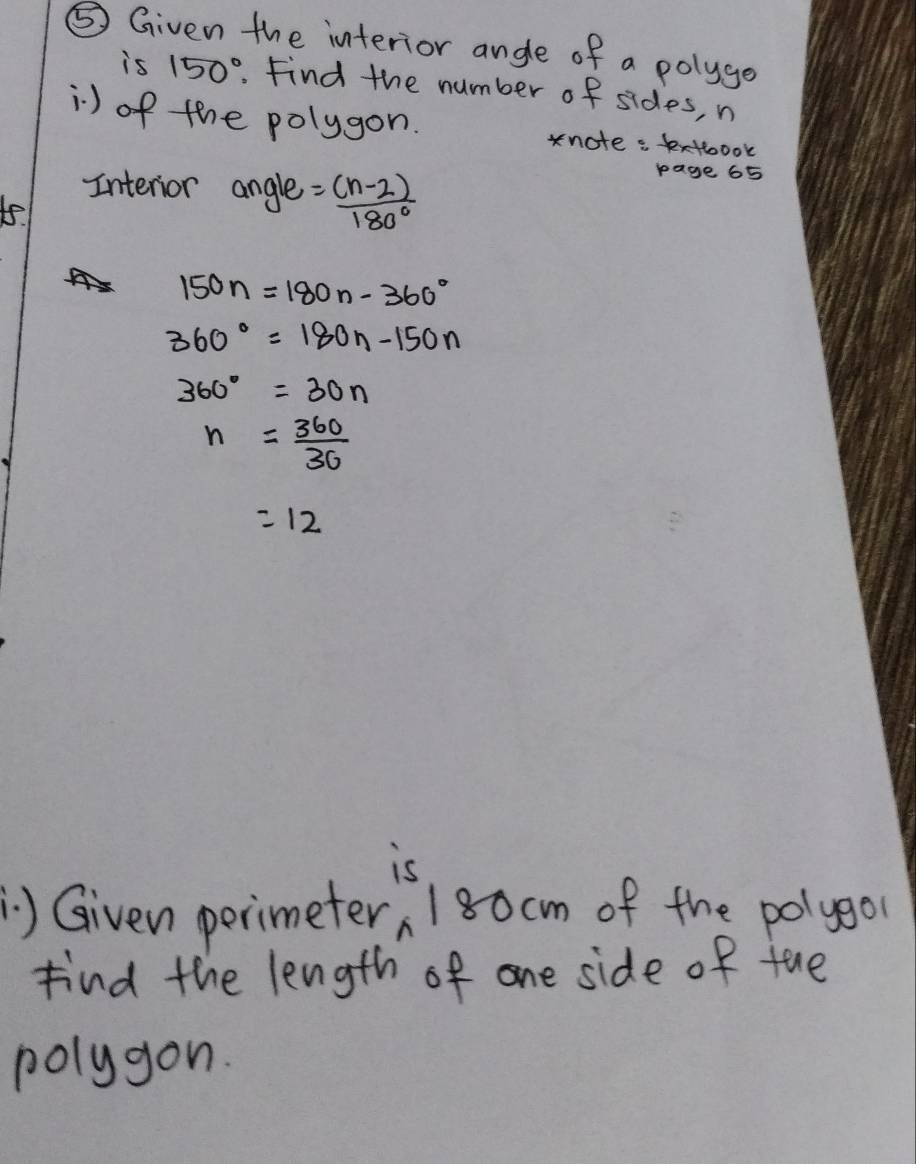 ⑤ Given the interior angle of a polygo
is 150°. Find the number of sides, n
i.) of the polygon.
*note : textbook
page 65
Interior angle = (n-2)/180°
150n = 180n - 360°
360° = 180n - 150n
360° = 30n
n = 360/30
= 12
i.) Given perimeter is 180cm of the polygo
Find the length of one side of the
polygon.